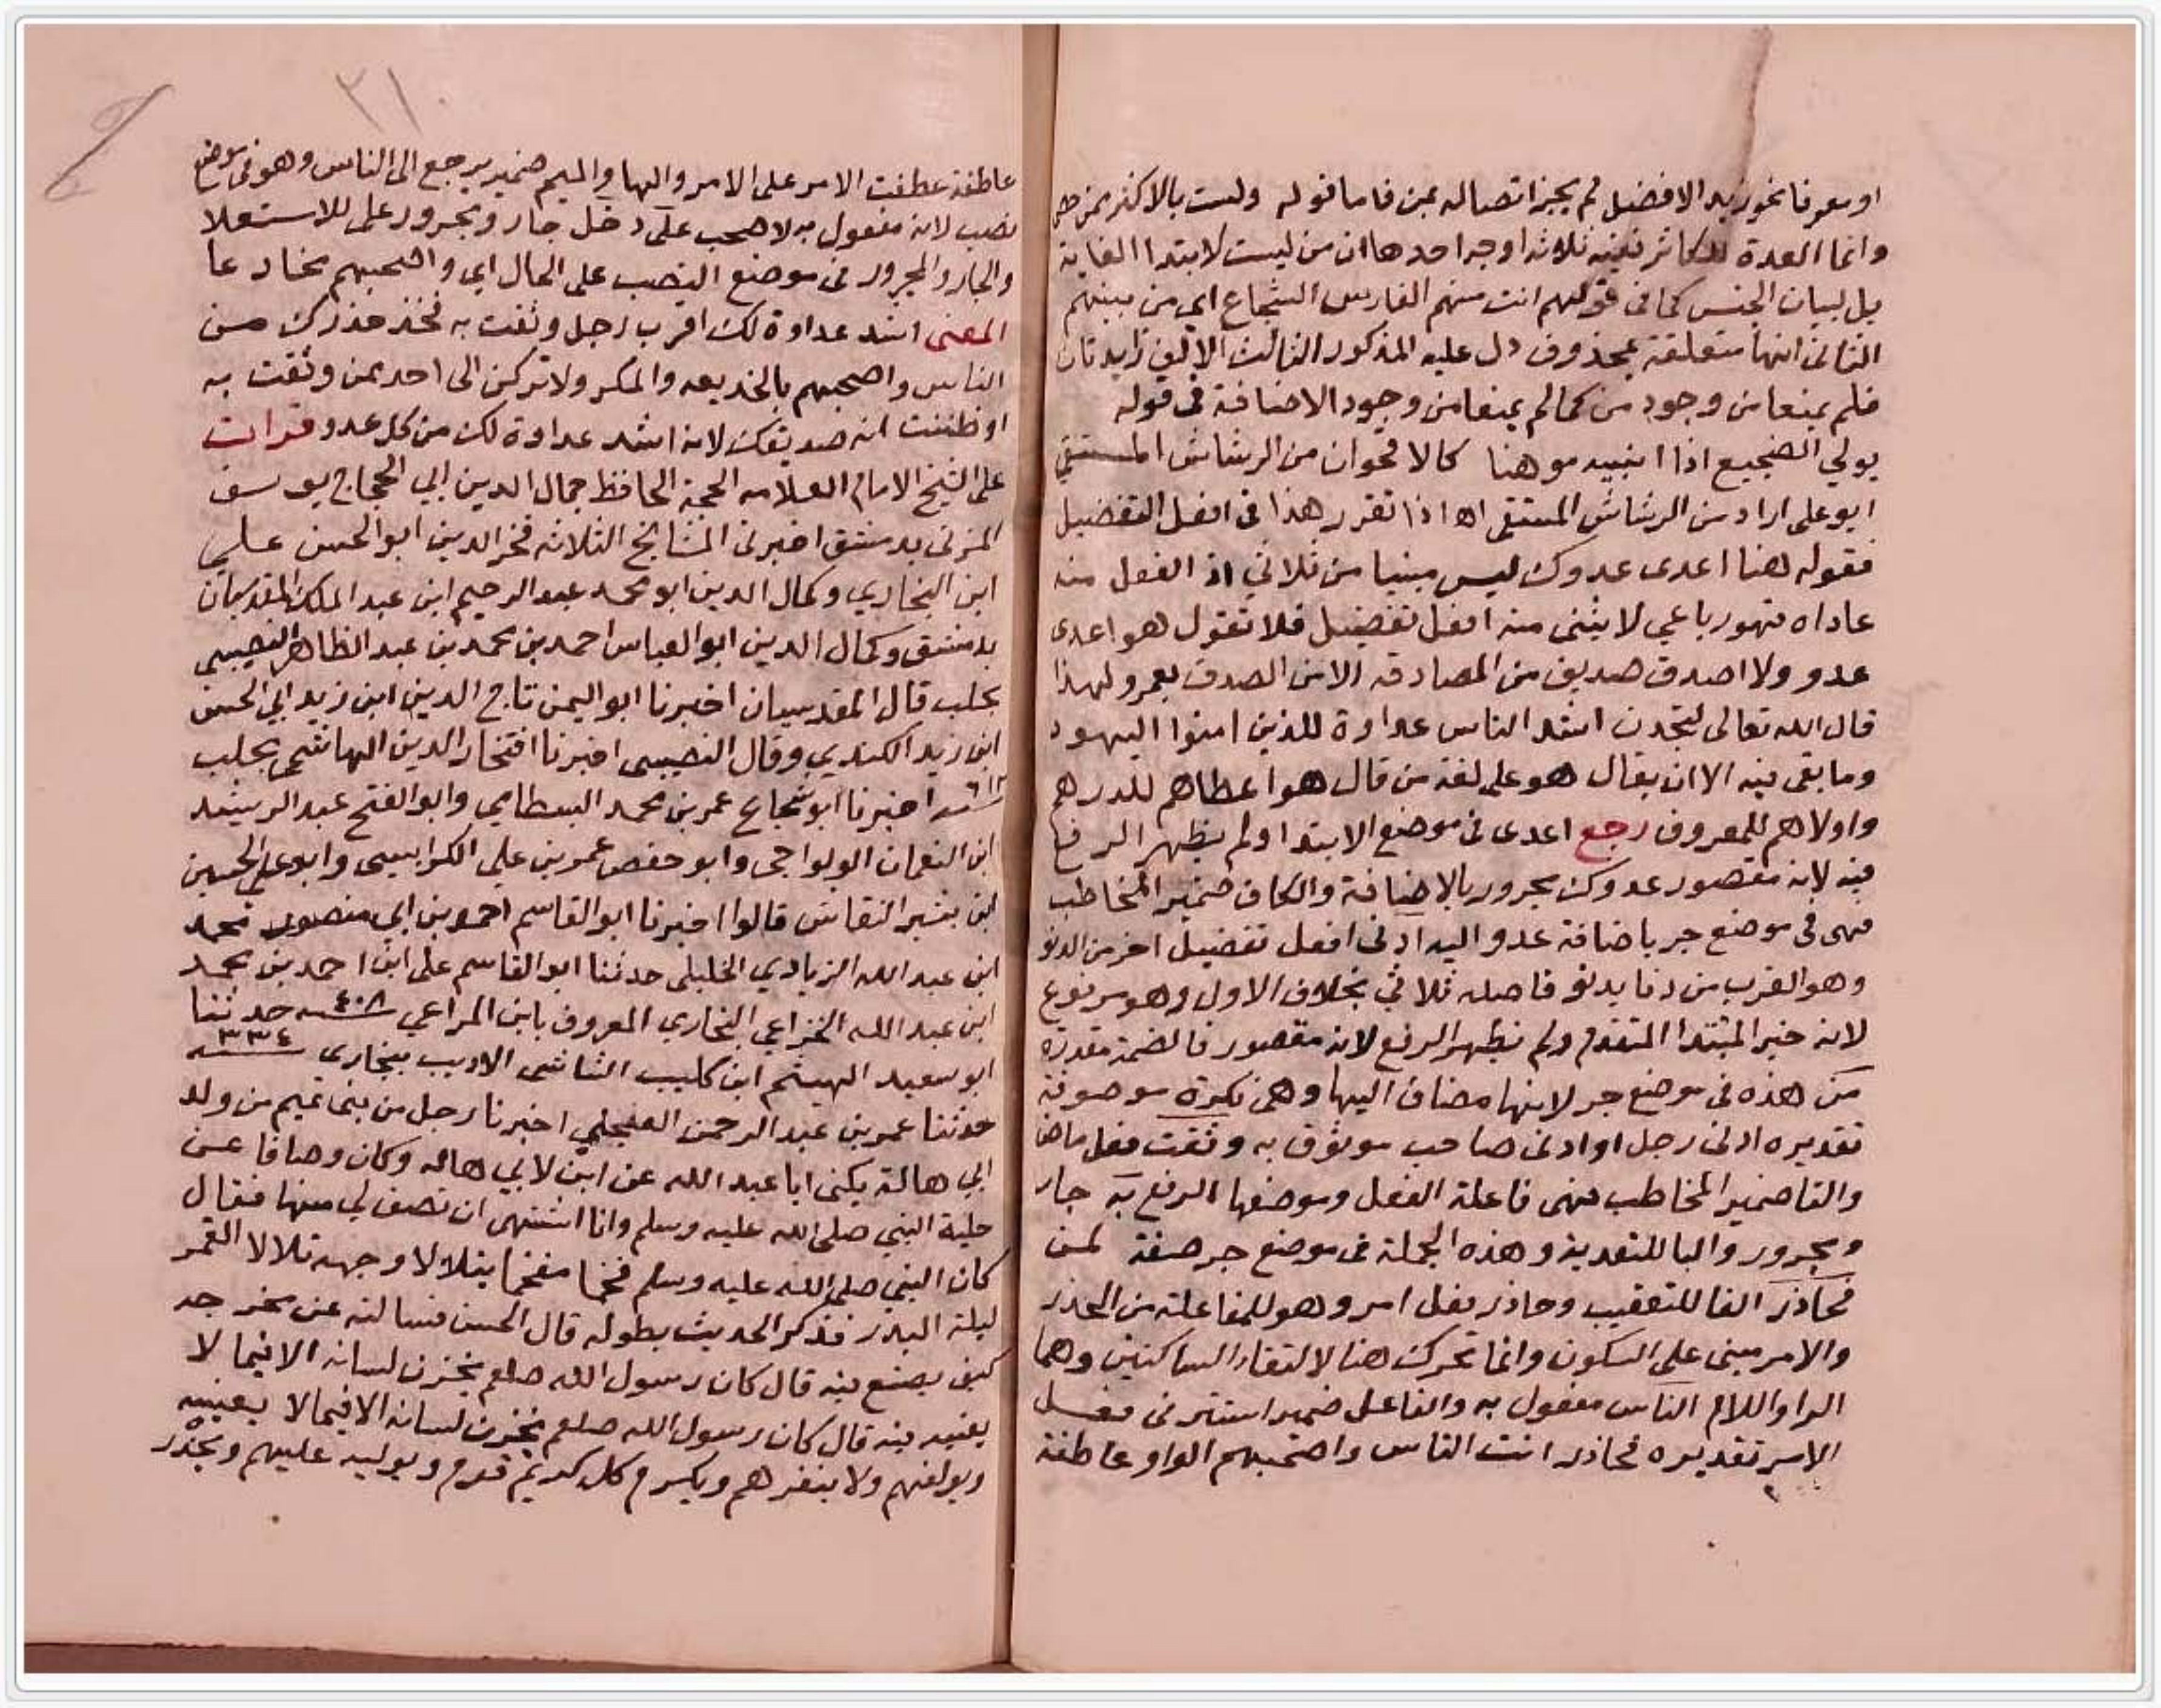 او معرفا نحو زيد الافضل لم يجز اتصاله بمن فاما قوله ولست بالاكثر منهم حصى
وانما العدة للكاثر ففيه ثلاثة اوجه احدها ان من ليست لابتدا الغاية
بل لبيان الجنس كما في قولهم انت منهم الفارس الشجاع اي من بينهم
الثاني انها متعلقة بمحذوف دل عليه المذكور الثالث الالف زايدتان
فلم يمنعا من وجود من كما لم يمنعا من وجود الاضافة في قوله
يولي الضجيع اذا انبيه موهنا كالاقحوان من الرشاش المستقي
ابو علي اراد من الرشاش المستقي اه اذا تقرر هذا في افعل التفضيل
فقوله هنا اعدى عدوك ليس مبنيا من ثلاثي اذ الفعل منه
عاداه فهو رباعي لا يبنى منه افعل تفضيل فلا تقول هو اعدى
عدو ولا اصدق صديق من المصادقه الا من الصدق بعمرو لهذا
قال الله تعالى لتجدن اشد الناس عداوة للذين امنوا اليهود
وما بقي فيه الا ان يقال هو على لغة من قال هو اعطاهم للدرهم
واولاهم للمعروف رجع اعدى في موضع الابتدا ولم يظهر الرفع
فيه لانه مقصور عدوك مجرور بالاضافة والكاف ضمير المخاطب
فهي في موضع جر باضافة عدو اليه ادنى افعل تفضيل اخر من الدنو
وهو القرب من دنا يدنو فاصله ثلاثي بخلاف الاول وهو مرفوع
لانه خبر المبتدا المتقدم ولم يظهر الرفع لانه مقصور فالضمة مقدرة
من هذه في موضع جر لانها مضاف اليها وهي نكرة موصوفة
تقديره ادنى رجل او ادنى صاحب موثوق به وثقت فعل ماض
والتا ضمير المخاطب فهي فاعلة الفعل وموضعها الرفع به جار
ومجرور والبا للتعدية وهذه الجملة في موضع جر صفة لمن
فحاذر الفا للتعقيب وحاذر فعل امر وهو للمفاعلة من الحذر
والامر مبني على السكون وانما تحرك هنا لالتقاء الساكنين وهما
الرا واللام الناس مفعول به والفاعل ضمير استتر في فعل
الامر تقديره فحاذر انت الناس واصحبهم الواو عاطفة
٣١
عاطفة عطفت الامر على الامر والها والميم ضمير يرجع الى الناس وهو في موضع
نصب لانه مفعول به لاصحب على دخل جار ومجرور على للاستعلا
والجار والمجرور في موضع النصب على الحال اي واصحبهم مخادعا
المعنى اشد عداوة لك اقرب رجل وثقت به فخذ حذرك من
الناس واصحبهم بالخديعه والمكر ولا تركن الى احد ممن وثقت به
او ظننت انه صديقك لانه اشد عداوة لك من كل عدو قرات
على الشيخ الامام العلامه الحجة الحافظ جمال الدين ابي الحجاج يوسف
المزني بدمشق اخبرني المشايخ الثلاثه فخر الدين ابو الحسن علي
ابن البخاري وكمال الدين ابو محمد عبد الرحيم ابن عبد الملك المقدسيان
بدمشق وكمال الدين ابو العباس احمد بن محمد بن عبد الظاهر النصيبي
بحلب قال المقدسيان اخبرنا ابو اليمن تاج الدين ابن زيد ابي الحسن
ابن زيد الكندي وقال النصيبي اخبرنا افتخار الدين الهاشمي بحلب
اخبرنا ابو شجاع عمر بن محمد البسطامي وابو الفتح عبد الرشيد
ابن النعمان الولواجي وابو حفص عمر بن علي الكرابيسي وابو علي الحسين
ابن بشير النقاش قالوا اخبرنا ابو القاسم احمد بن ابي منصور محمد
ابن عبد الله الزيادي الخليلي حدثنا ابو القاسم علي ابن احمد بن محمد
ابن عبد الله الخزاعي البخاري المعروف بابن المراعي سنة ٤٠٨ حدثنا
ابو سعيد الهيثم ابن كليب الشاشي الاديب ببخارى سنة ٣٣٤
حدثنا عمر بن عبد الرحمن العجلي اخبرنا رجل من بني تميم من ولد
ابي هالة يكنى ابا عبد الله عن ابن لابي هاله وكان وصافا عن
حلية النبي صلى الله عليه وسلم وانا اشتهي ان تصف لي منها فقال
كان النبي صلى الله عليه وسلم فخما مفخما يتلالا وجهه تلالا القمر
ليلة البدر فذكر الحديث بطوله قال الحسن فسالته عن مخرجه
كيف يصنع فيه قال كان رسول الله صلعم يخزن لسانه الا فيما لا
يعنيه فيه قال كان رسول الله صلعم يخزن لسانه الا فيما لا يعنيه
ويولفهم ولا ينفرهم ويكرم كل كريم قوم ويوليه عليهم ويحذر